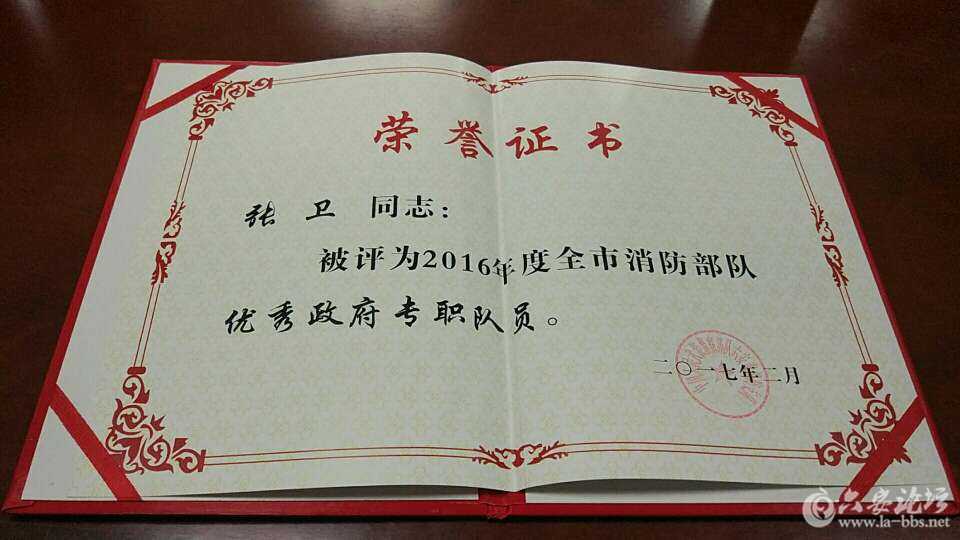 荣誉证书
张卫 同志：
被评为2016年度全市消防部队
优秀政府专职队员。
二〇一七年二月
六安论坛
www.la-bbs.net